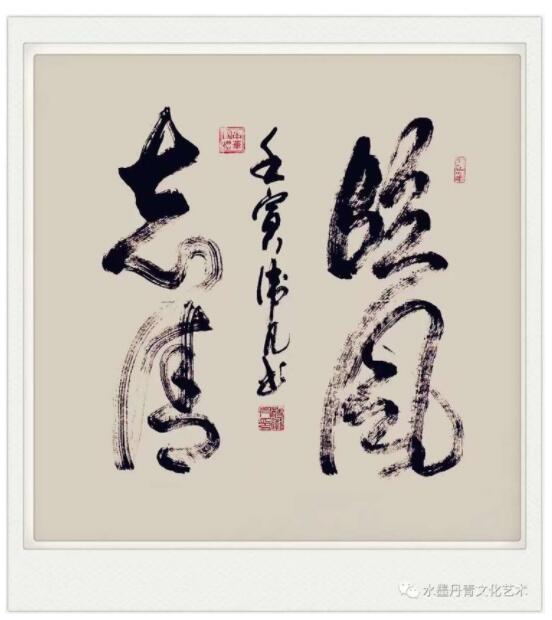 臨風
壬寅
志清
水墨丹青文化艺术